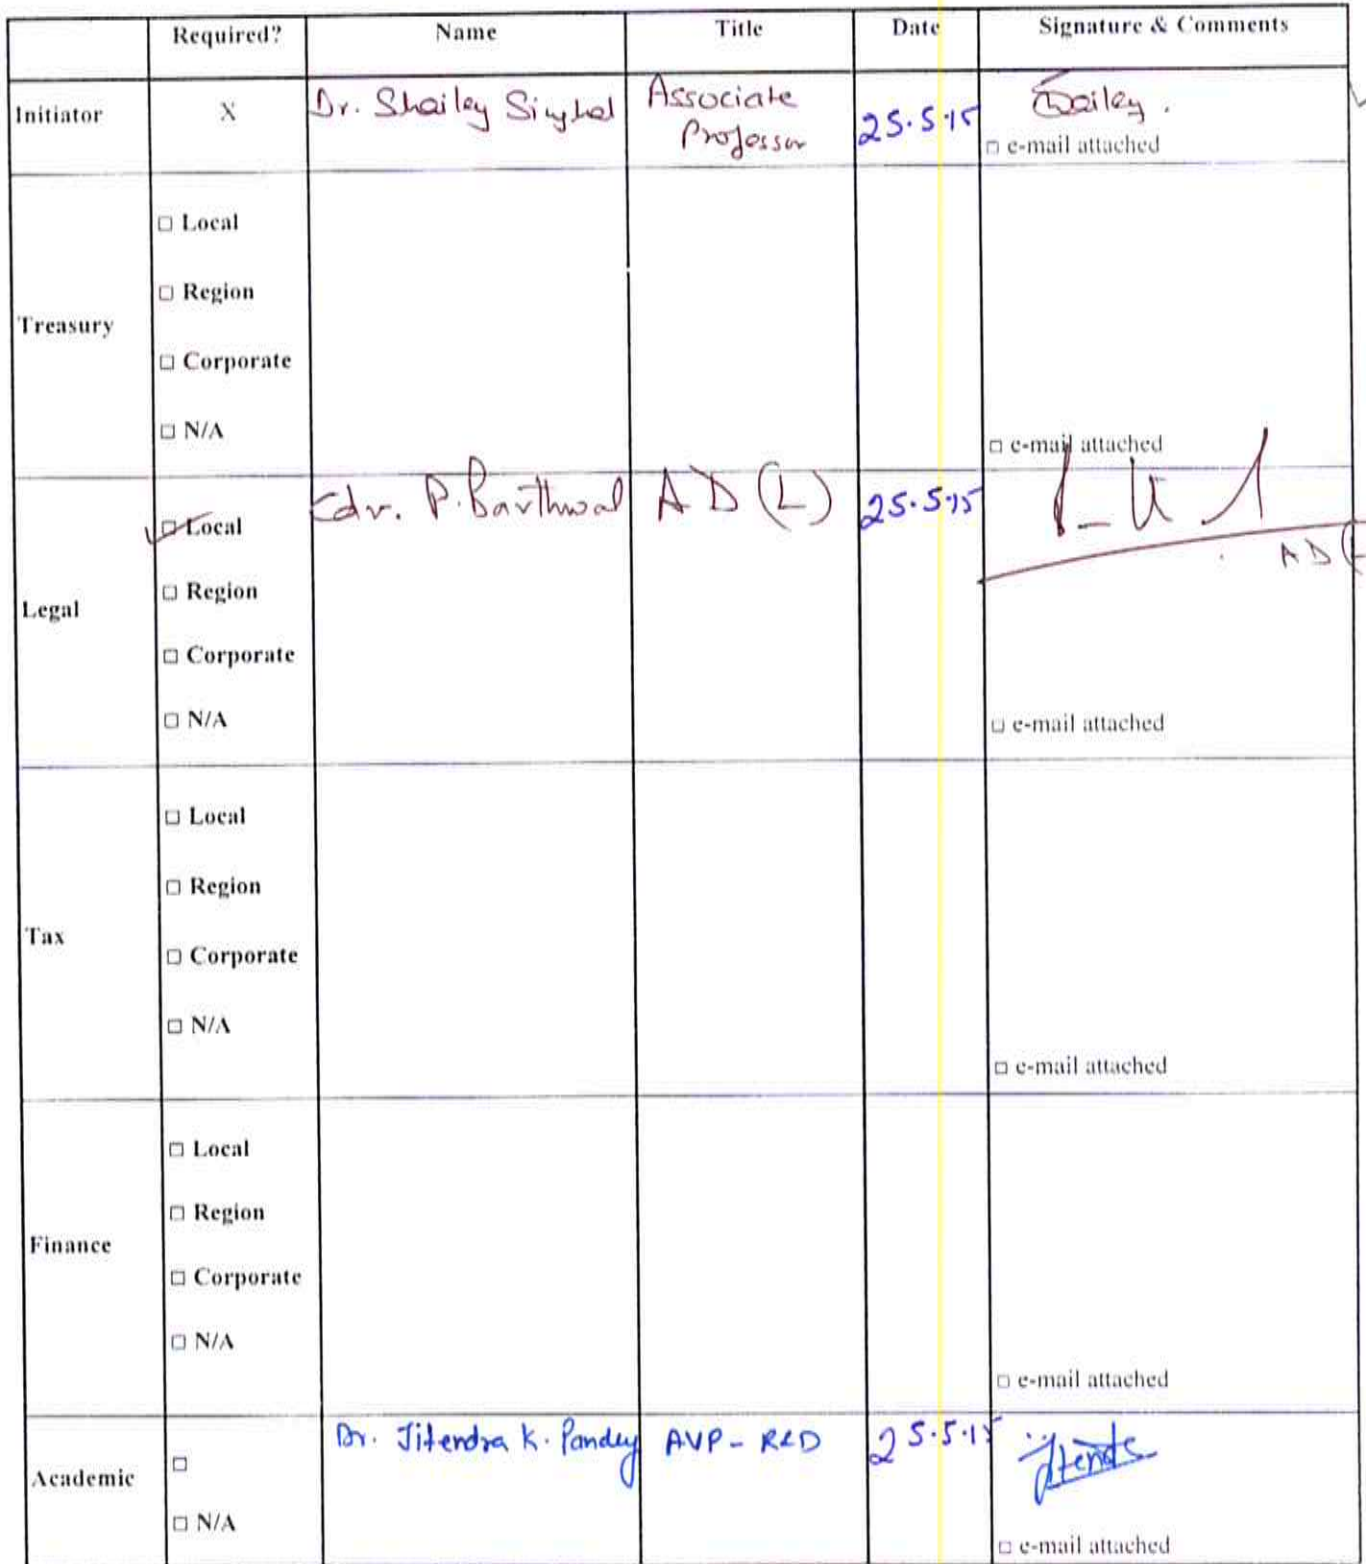 Required? Name Title Date Signature & Comments
Initiator X Dr. Shailey Singhal Associate Professor 25.5.15
□ e-mail attached
Treasury
□ Local
□ Region
□ Corporate
□ N/A
□ e-mail attached
Legal
□ Local P. Barthwal AD (L) 25.5.15
AD
□ Region
□ Corporate
□ N/A
□ e-mail attached
Tax
□ Local
□ Region
□ Corporate
□ N/A
□ e-mail attached
Finance
□ Local
□ Region
□ Corporate
□ N/A
□ e-mail attached
Academic
□ Dr. Jitendra K. Pandey AVP - R&D 25.5.15
□ N/A
□ e-mail attached